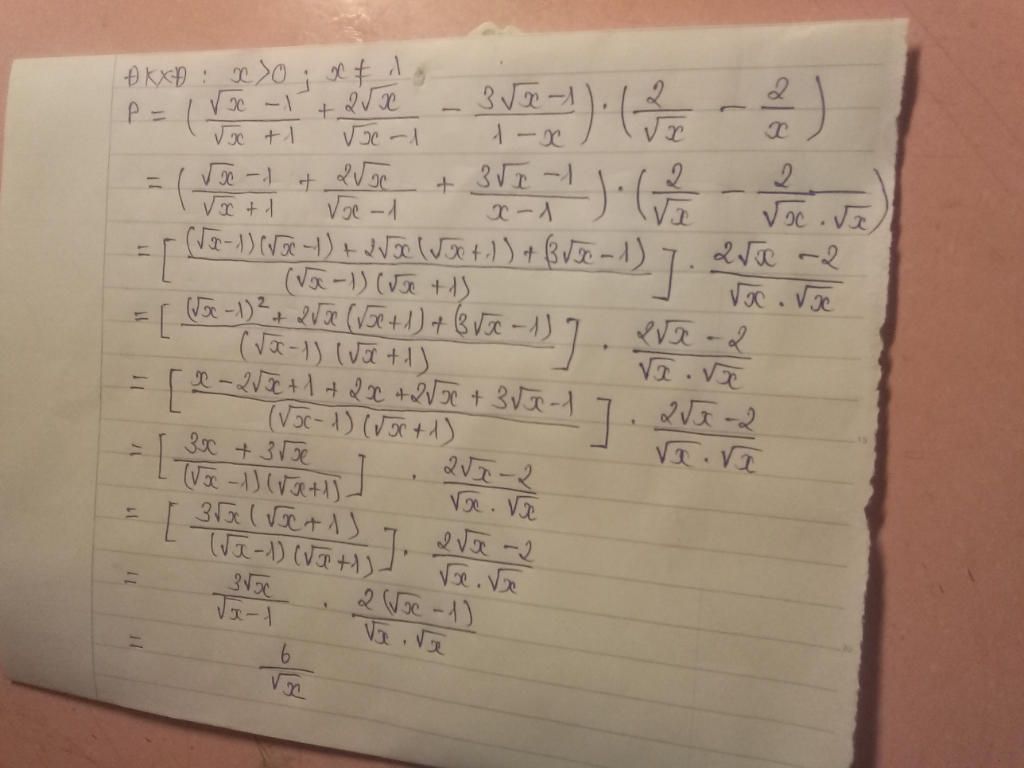 ĐKXĐ : x > 0 ; x ≠ 1
P = ( (√x - 1)/(√x + 1) + (2√x)/(√x - 1) - (3√x - 1)/(1 - x) ) · ( 2/√x - 2/x )
= ( (√x - 1)/(√x + 1) + (2√x)/(√x - 1) + (3√x - 1)/(x - 1) ) · ( 2/√x - 2/(√x . √x) )
= [ ((√x-1)(√x-1) + 2√x(√x+1) + (3√x-1))/((√x-1)(√x+1)) ] . (2√x - 2)/(√x . √x)
= [ ((√x-1)² + 2√x(√x+1) + (3√x-1))/((√x-1)(√x+1)) ] . (2√x - 2)/(√x . √x)
= [ (x - 2√x + 1 + 2x + 2√x + 3√x - 1)/((√x-1)(√x+1)) ] . (2√x - 2)/(√x . √x)
= [ (3x + 3√x)/((√x-1)(√x+1)) ] . (2√x - 2)/(√x . √x)
= [ (3√x(√x+1))/((√x-1)(√x+1)) ] . (2√x - 2)/(√x . √x)
= (3√x)/(√x-1) . (2(√x-1))/(√x . √x)
= 6/√x